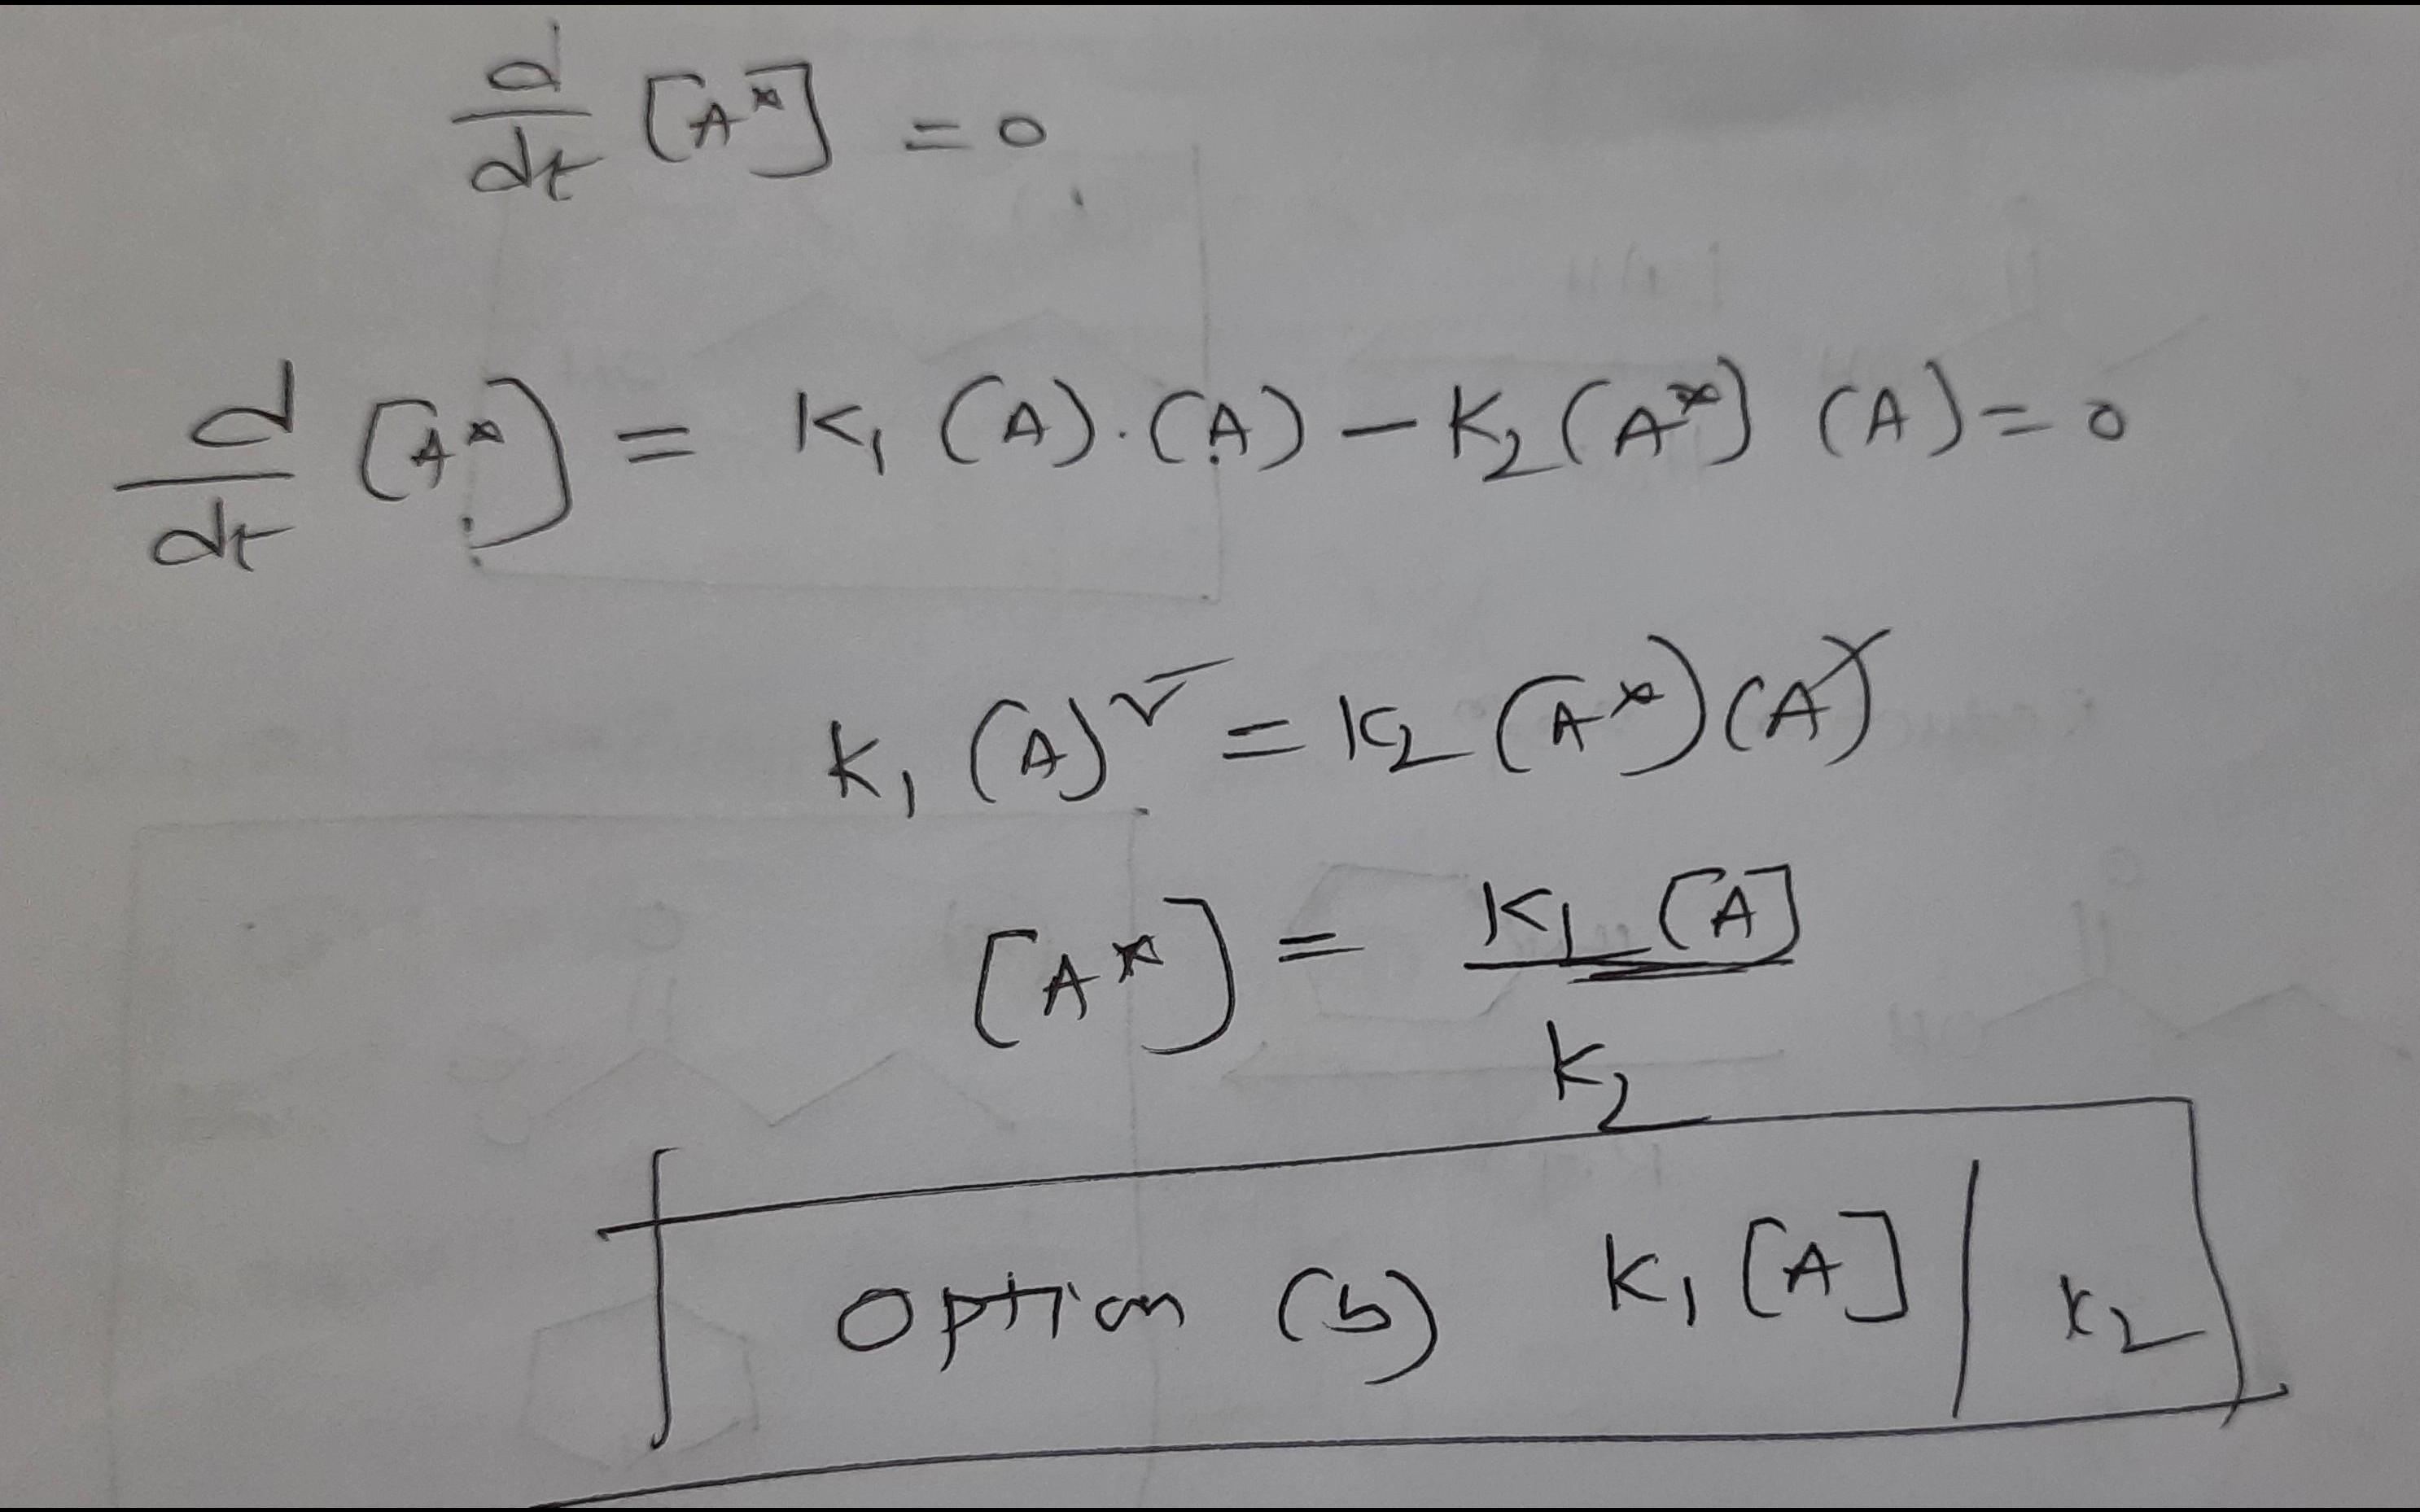 d/dt [A*] = 0
d/dt [A*] = K₁ (A).(A) - K₂ (A*) (A) = 0
K₁ (A)² = K₂ (A*) (A)
[A*] = K₁ [A] / K₂
Option (b) K₁ [A] / K₂